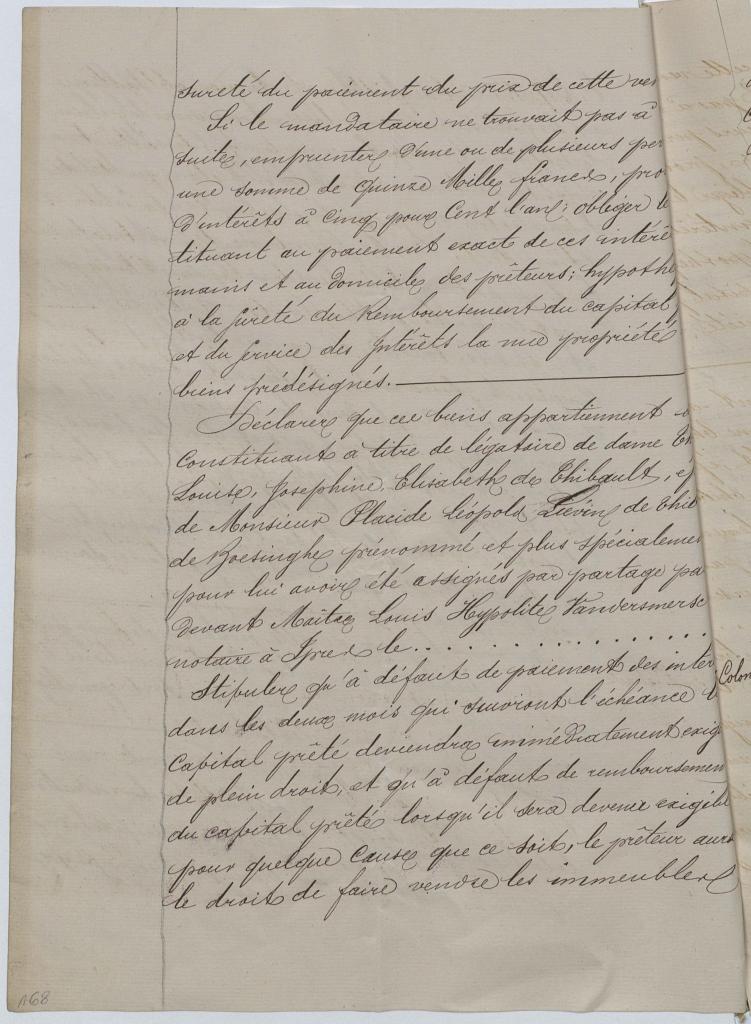 sureté du paiement du prix de cette ven
Si le mandataire ne trouvait pas à
suite, emprunter d'une ou de plusieurs per
une somme de Quinze Mille francs, pro
d'intérêts à cinq pour Cent l'an; obliger le
tituant au paiement exact de ces intérê
mains et au domicile des prêteurs; hypothé
à la sûreté du Remboursement du capital
et du service des Intérêts la nue propriété
biens prédésignés.
Déclarer que ces biens appartiennent
Constituant à titre de légataire de dame
Louise, Josephine, Elisabeth de Thibault, e
de Monsieur Placide Léopold Liévin de Thi
de Boesinghe prénommé et plus spécialeme
pour lui avoir été assignés par partage pa
devant Maître Louis Hypolite Vandersmersc
notaire à Ypres le . . . . . . . . . . . . . . . .
Stipuler qu'à défaut de paiement des intér
dans les deux mois qui suivront l'échéance
Capital prêté deviendra immédiatement exig
de plein droit, et qu'à défaut de remboursemen
du capital prêté lorsqu'il sera devenu exigibl
pour quelque Cause que ce soit, le prêteur aura
le droit de faire vendre les immeubles
Colon
168